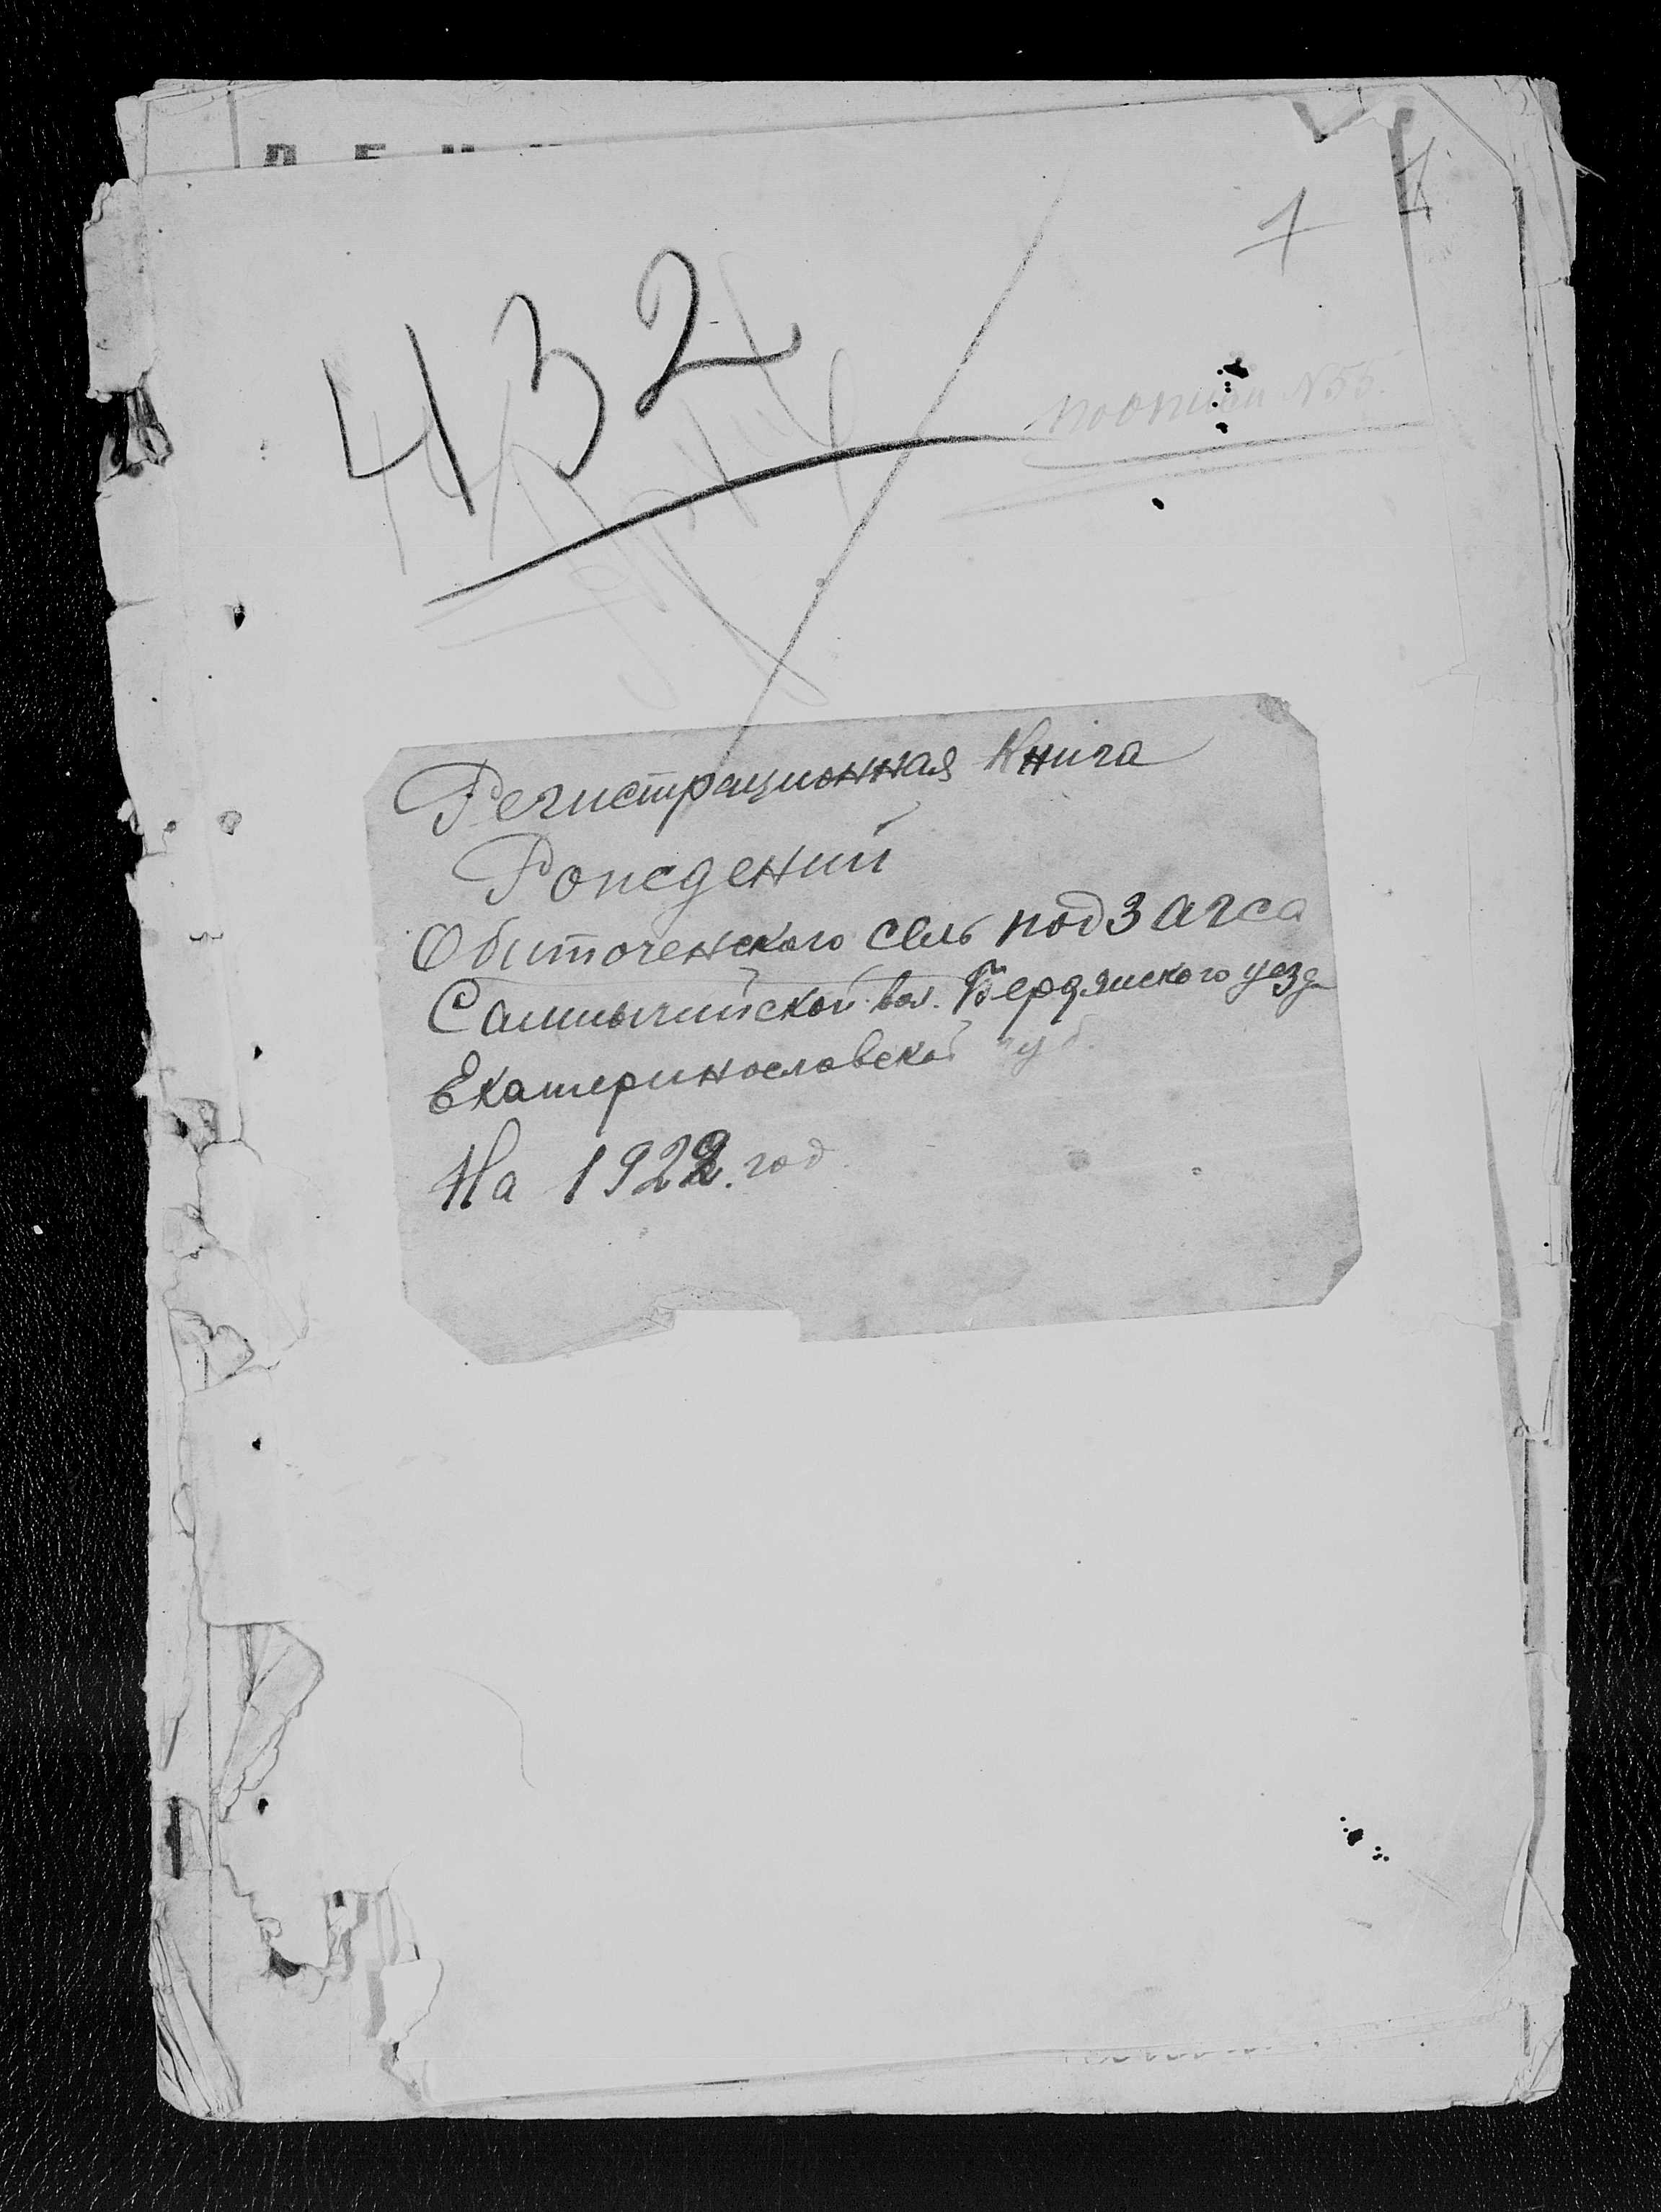 1
432
Регистрационная Книга
Рождений
Обиточенского сель подЗагса
вол. Бердянского уезда
Екатеринославской губ.
На 1922. год